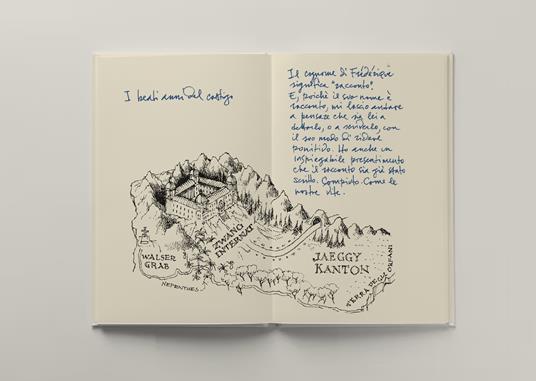 I beati anni del castigo
Il cognome di Frédérique
significa "racconto".
E, poiché il suo nome è
racconto, mi lascio andare
a pensare che sia lei a
dettarlo, o a scriverlo, con
il suo modo di ridere
punitivo. Ho anche un
inspiegabile presentimento
che il racconto sia già stato
scritto. Compiuto. Come le
nostre vite.
WALSER
GRAB
NEPENTHES
ZWANG
INTERNAT
JAEGGY
KANTON
TERRA DEGLI ORFANI